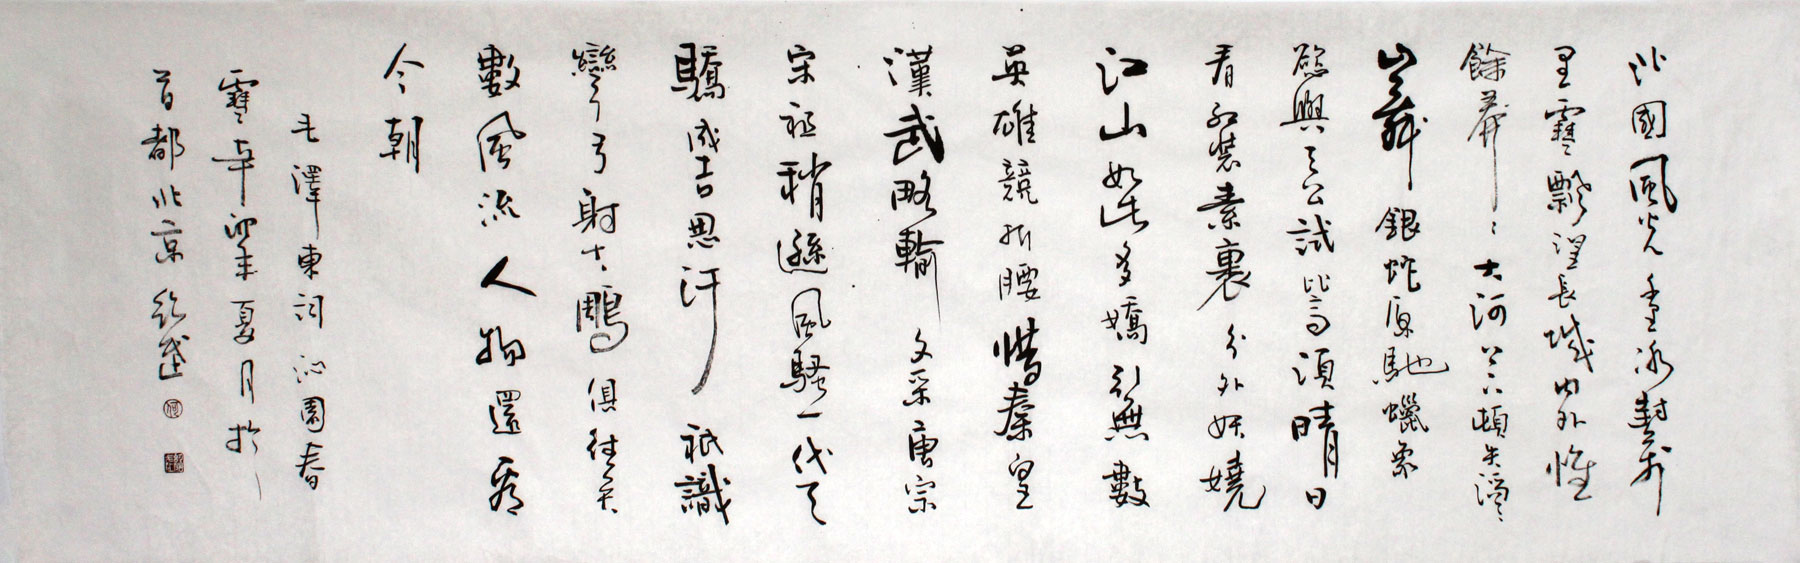 北國風光千里冰封萬
里雪飄望長城內外惟
餘莽〻大河上下頓失滔〻
山舞銀蛇原馳蠟象
欲與天公試比高須晴日
看紅裝素裹分外妖嬈
江山如此多嬌引無數
英雄競折腰惜秦皇
漢武略輸文采唐宗
宋祖稍遜風騷一代天
驕成吉思汗祇識
彎弓射大鵰俱往矣
數風流人物還看
今朝
毛澤東詞沁園春
雪辛卯年夏月於
首都北京